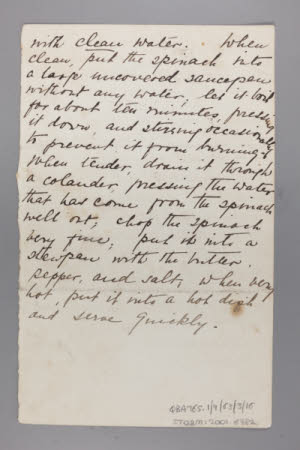 with clean water. When
clean, put the spinach into
a large uncovered saucepan
without any water, let it boil
for about ten minutes, pressing
it down, and stirring occasionally
to prevent it from burning &
when tender, drain it through
a colander, pressing the water
that has come from the spinach
well out; chop the spinach
very fine; put it into a
stewpan with the butter.
pepper, and salt, when very
hot, put it into a hot dish
and serve quickly.